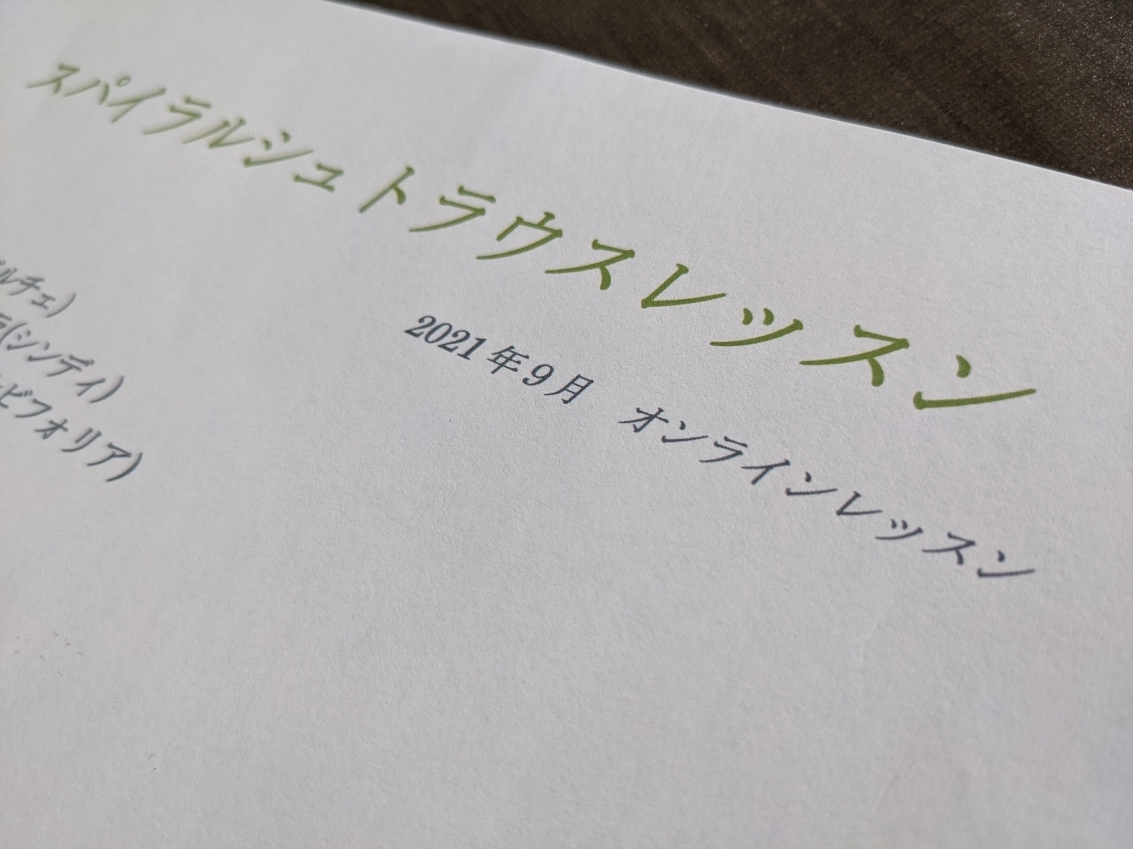 スパイラルシュトラウスレッスン
2021年9月 オンラインレッスン
ルチェ)
(シンディ)
ビフォリア)